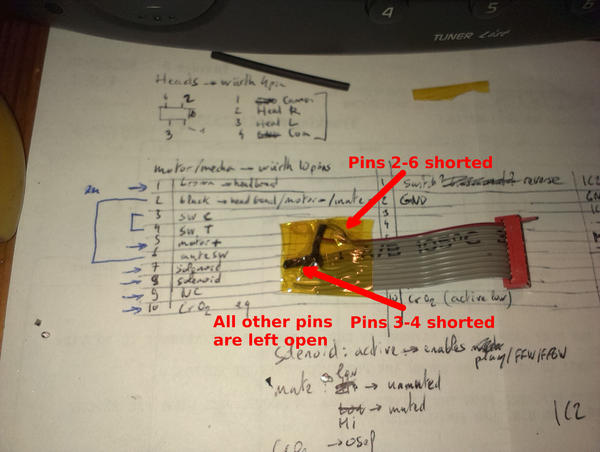 4
5
6
TUNER
Heads → würth 4pin
6 2
1 Common
2 Head R
3 Head L
3
4 Com
motor/mecha → würth 10pins
Pins 2-6 shorted
1 brown → headband
1 switch? reverse
IC2
2 black → headband/motor-/mute
2 GND
3 SW C
3
4 SW T
4
5 motor +
105°C
6 mute sw
7 solenoid
8 solenoid
9 NC
10 CrO2 eq
10 CrO2 (active low)
All other pins
are left open
Pins 3-4 shorted
Solenoid: active → enables play/FFW/
mute:
→ unmuted
→ muted
Hi
IC2
CrO2 →